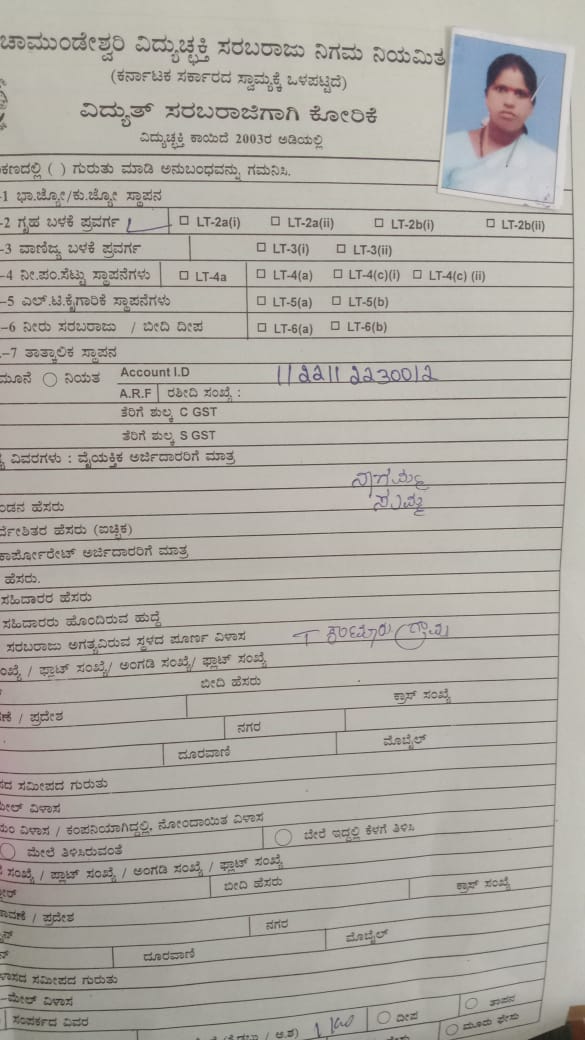 ಚಾಮುಂಡೇಶ್ವರಿ ವಿದ್ಯುಚ್ಛಕ್ತಿ ಸರಬರಾಜು ನಿಗಮ ನಿಯಮಿತ
(ಕರ್ನಾಟಕ ಸರ್ಕಾರದ ಸ್ವಾಮ್ಯಕ್ಕೆ ಒಳಪಟ್ಟಿದೆ)
ವಿದ್ಯುತ್ ಸರಬರಾಜಿಗಾಗಿ ಕೋರಿಕೆ
ವಿದ್ಯುಚ್ಛಕ್ತಿ ಕಾಯಿದೆ 2003ರ ಅಡಿಯಲ್ಲಿ
ಕಣದಲ್ಲಿ ( ) ಗುರುತು ಮಾಡಿ ಅನುಬಂಧವನ್ನು ಗಮನಿಸಿ.
-1 ಭಾ.ಜ್ಯೋ/ಕು.ಜ್ಯೋ ಸ್ಥಾಪನ
-2 ಗೃಹ ಬಳಕೆ ಪ್ರವರ್ಗ □ LT-2a(i) □ LT-2a(ii) □ LT-2b(i) □ LT-2b(ii)
-3 ವಾಣಿಜ್ಯ ಬಳಕೆ ಪ್ರವರ್ಗ □ LT-3(i) □ LT-3(ii)
-4 ನೀ.ಪಂ.ಸೆಟ್ಟು ಸ್ಥಾಪನೆಗಳು □ LT-4a □ LT-4(a) □ LT-4(c)(i) □ LT-4(c) (ii)
-5 ಎಲ್.ಟಿ.ಕೈಗಾರಿಕೆ ಸ್ಥಾಪನೆಗಳು □ LT-5(a) □ LT-5(b)
-6 ನೀರು ಸರಬರಾಜು / ಬೀದಿ ದೀಪ □ LT-6(a) □ LT-6(b)
-7 ತಾತ್ಕಾಲಿಕ ಸ್ಥಾಪನ
ಮೂನೆ ○ ನಿಯತ Account I.D 1122112230012
A.R.F ರಶೀದಿ ಸಂಖ್ಯೆ :
ತೆರಿಗೆ ಶುಲ್ಕ C GST
ತೆರಿಗೆ ಶುಲ್ಕ S GST
ವಿವರಗಳು : ವೈಯಕ್ತಿಕ ಅರ್ಜಿದಾರರಿಗೆ ಮಾತ್ರ
ನಾಗಮ್ಮ
ಂಡನ ಹೆಸರು
ರ್ದೇಶಿತರ ಹೆಸರು (ಐಚ್ಛಿಕ)
ಕಾರ್ಪೋರೇಟ್ ಅರ್ಜಿದಾರರಿಗೆ ಮಾತ್ರ
ಹೆಸರು.
ಸಹಿದಾರರ ಹೆಸರು
ಸಹಿದಾರರು ಹೊಂದಿರುವ ಹುದ್ದೆ
ಸರಬರಾಜು ಅಗತ್ಯವಿರುವ ಸ್ಥಳದ ಪೂರ್ಣ ವಿಳಾಸ
ಂಖ್ಯೆ / ಫ್ಲಾಟ್ ಸಂಖ್ಯೆ/ ಅಂಗಡಿ ಸಂಖ್ಯೆ/ ಫ್ಲಾಟ್ ಸಂಖ್ಯೆ
ಬೀದಿ ಹೆಸರು
ಕ್ರಾಸ್ ಸಂಖ್ಯೆ
ಣೆ / ಪ್ರದೇಶ
ನಗರ
ದೂರವಾಣಿ ಮೊಬೈಲ್
ಸದ ಸಮೀಪದ ಗುರುತು
ಮೇಲ್ ವಿಳಾಸ
ಯಂ ವಿಳಾಸ / ಕಂಪನಿಯಾಗಿದ್ದಲ್ಲಿ, ನೋಂದಾಯಿತ ವಿಳಾಸ
○ ಮೇಲೆ ತಿಳಿಸಿರುವಂತೆ ○ ಬೇರೆ ಇದ್ದಲ್ಲಿ ಕೆಳಗೆ ತಿಳಿಸಿ
ಸಂಖ್ಯೆ / ಪ್ಲಾಟ್ ಸಂಖ್ಯೆ / ಅಂಗಡಿ ಸಂಖ್ಯೆ / ಫ್ಲಾಟ್ ಸಂಖ್ಯೆ
ಬೀದಿ ಹೆಸರು ಕ್ರಾಸ್ ಸಂಖ್ಯೆ
ಾವಣೆ / ಪ್ರದೇಶ
ನಗರ
ದೂರವಾಣಿ ಮೊಬೈಲ್
ಳಾಸದ ಸಮೀಪದ ಗುರುತು
-ಮೇಲ್ ವಿಳಾಸ
ಸಂಪರ್ಕದ ವಿವರ
○ ದೀಪ ○ ತಾಪನ
○ ಮೂರು ಫೇಸು